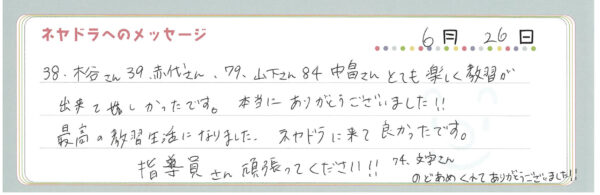 ネヤドラへのメッセージ
6月 26日
38、木谷さん 39、赤代さん、79、山下さん 84 中畠さん とても楽しく教習が
出来て嬉しかったです。本当にありがとうございました!!
最高の教習生活になりました。ネヤドラに来て良かったです。
指導員さん頑張ってください!! 74、文字さん
のどあめくれてありがとうございました!!